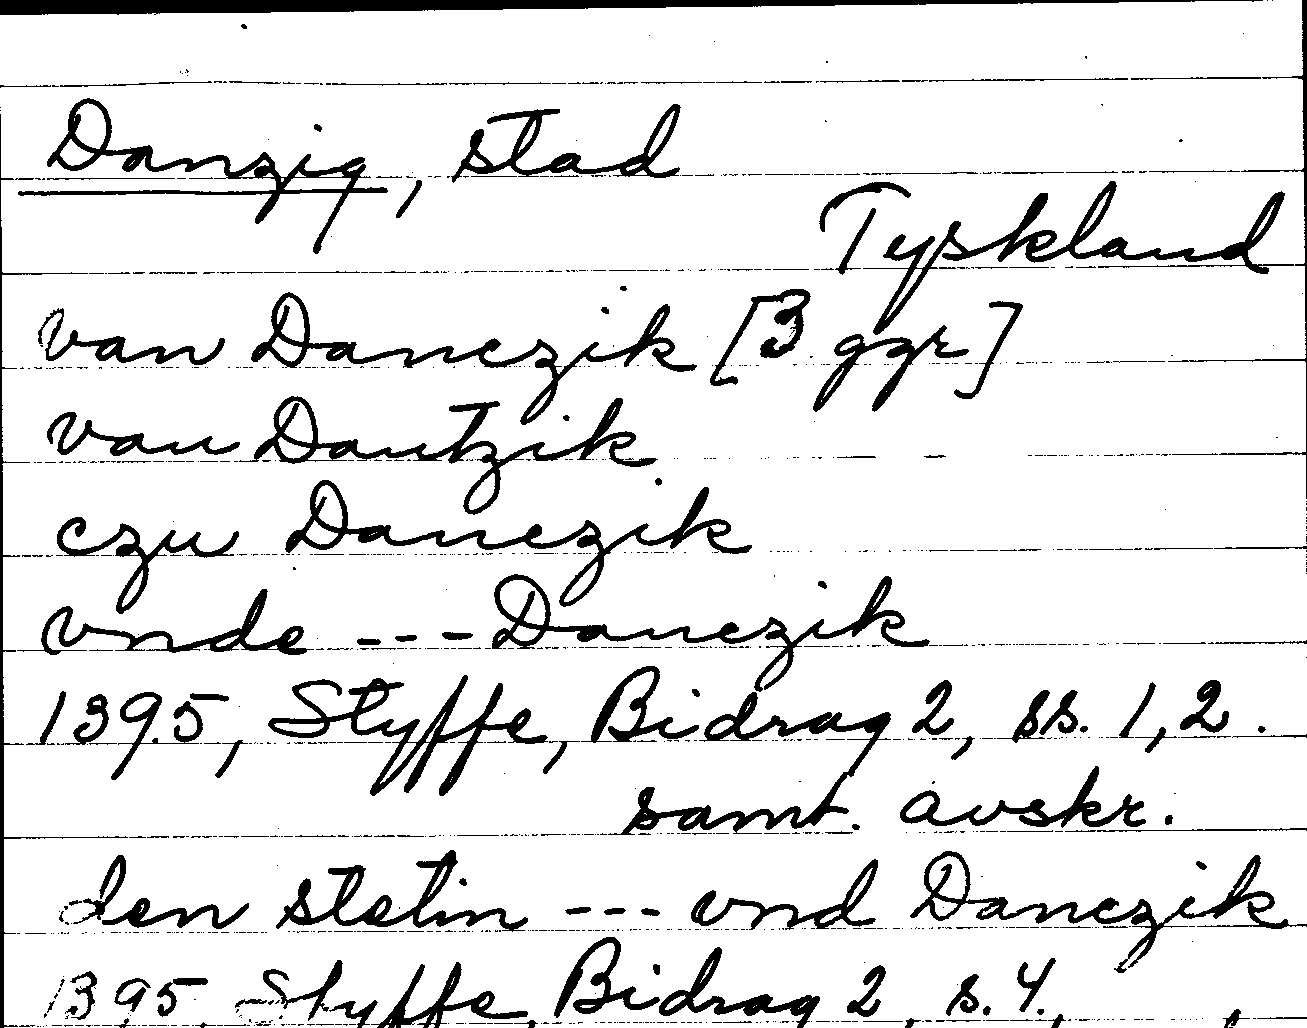 Danzig, stad
Tyskland
van Danczik [3 ggr]
van Dantzik
czu Danczik
vnde --- Danczik
1395, Styffe, Bidrag 2, ss. 1, 2.
samt. avskr.
den stetin --- vnd Danczik
1395, Styffe, Bidrag 2, s. 4.,